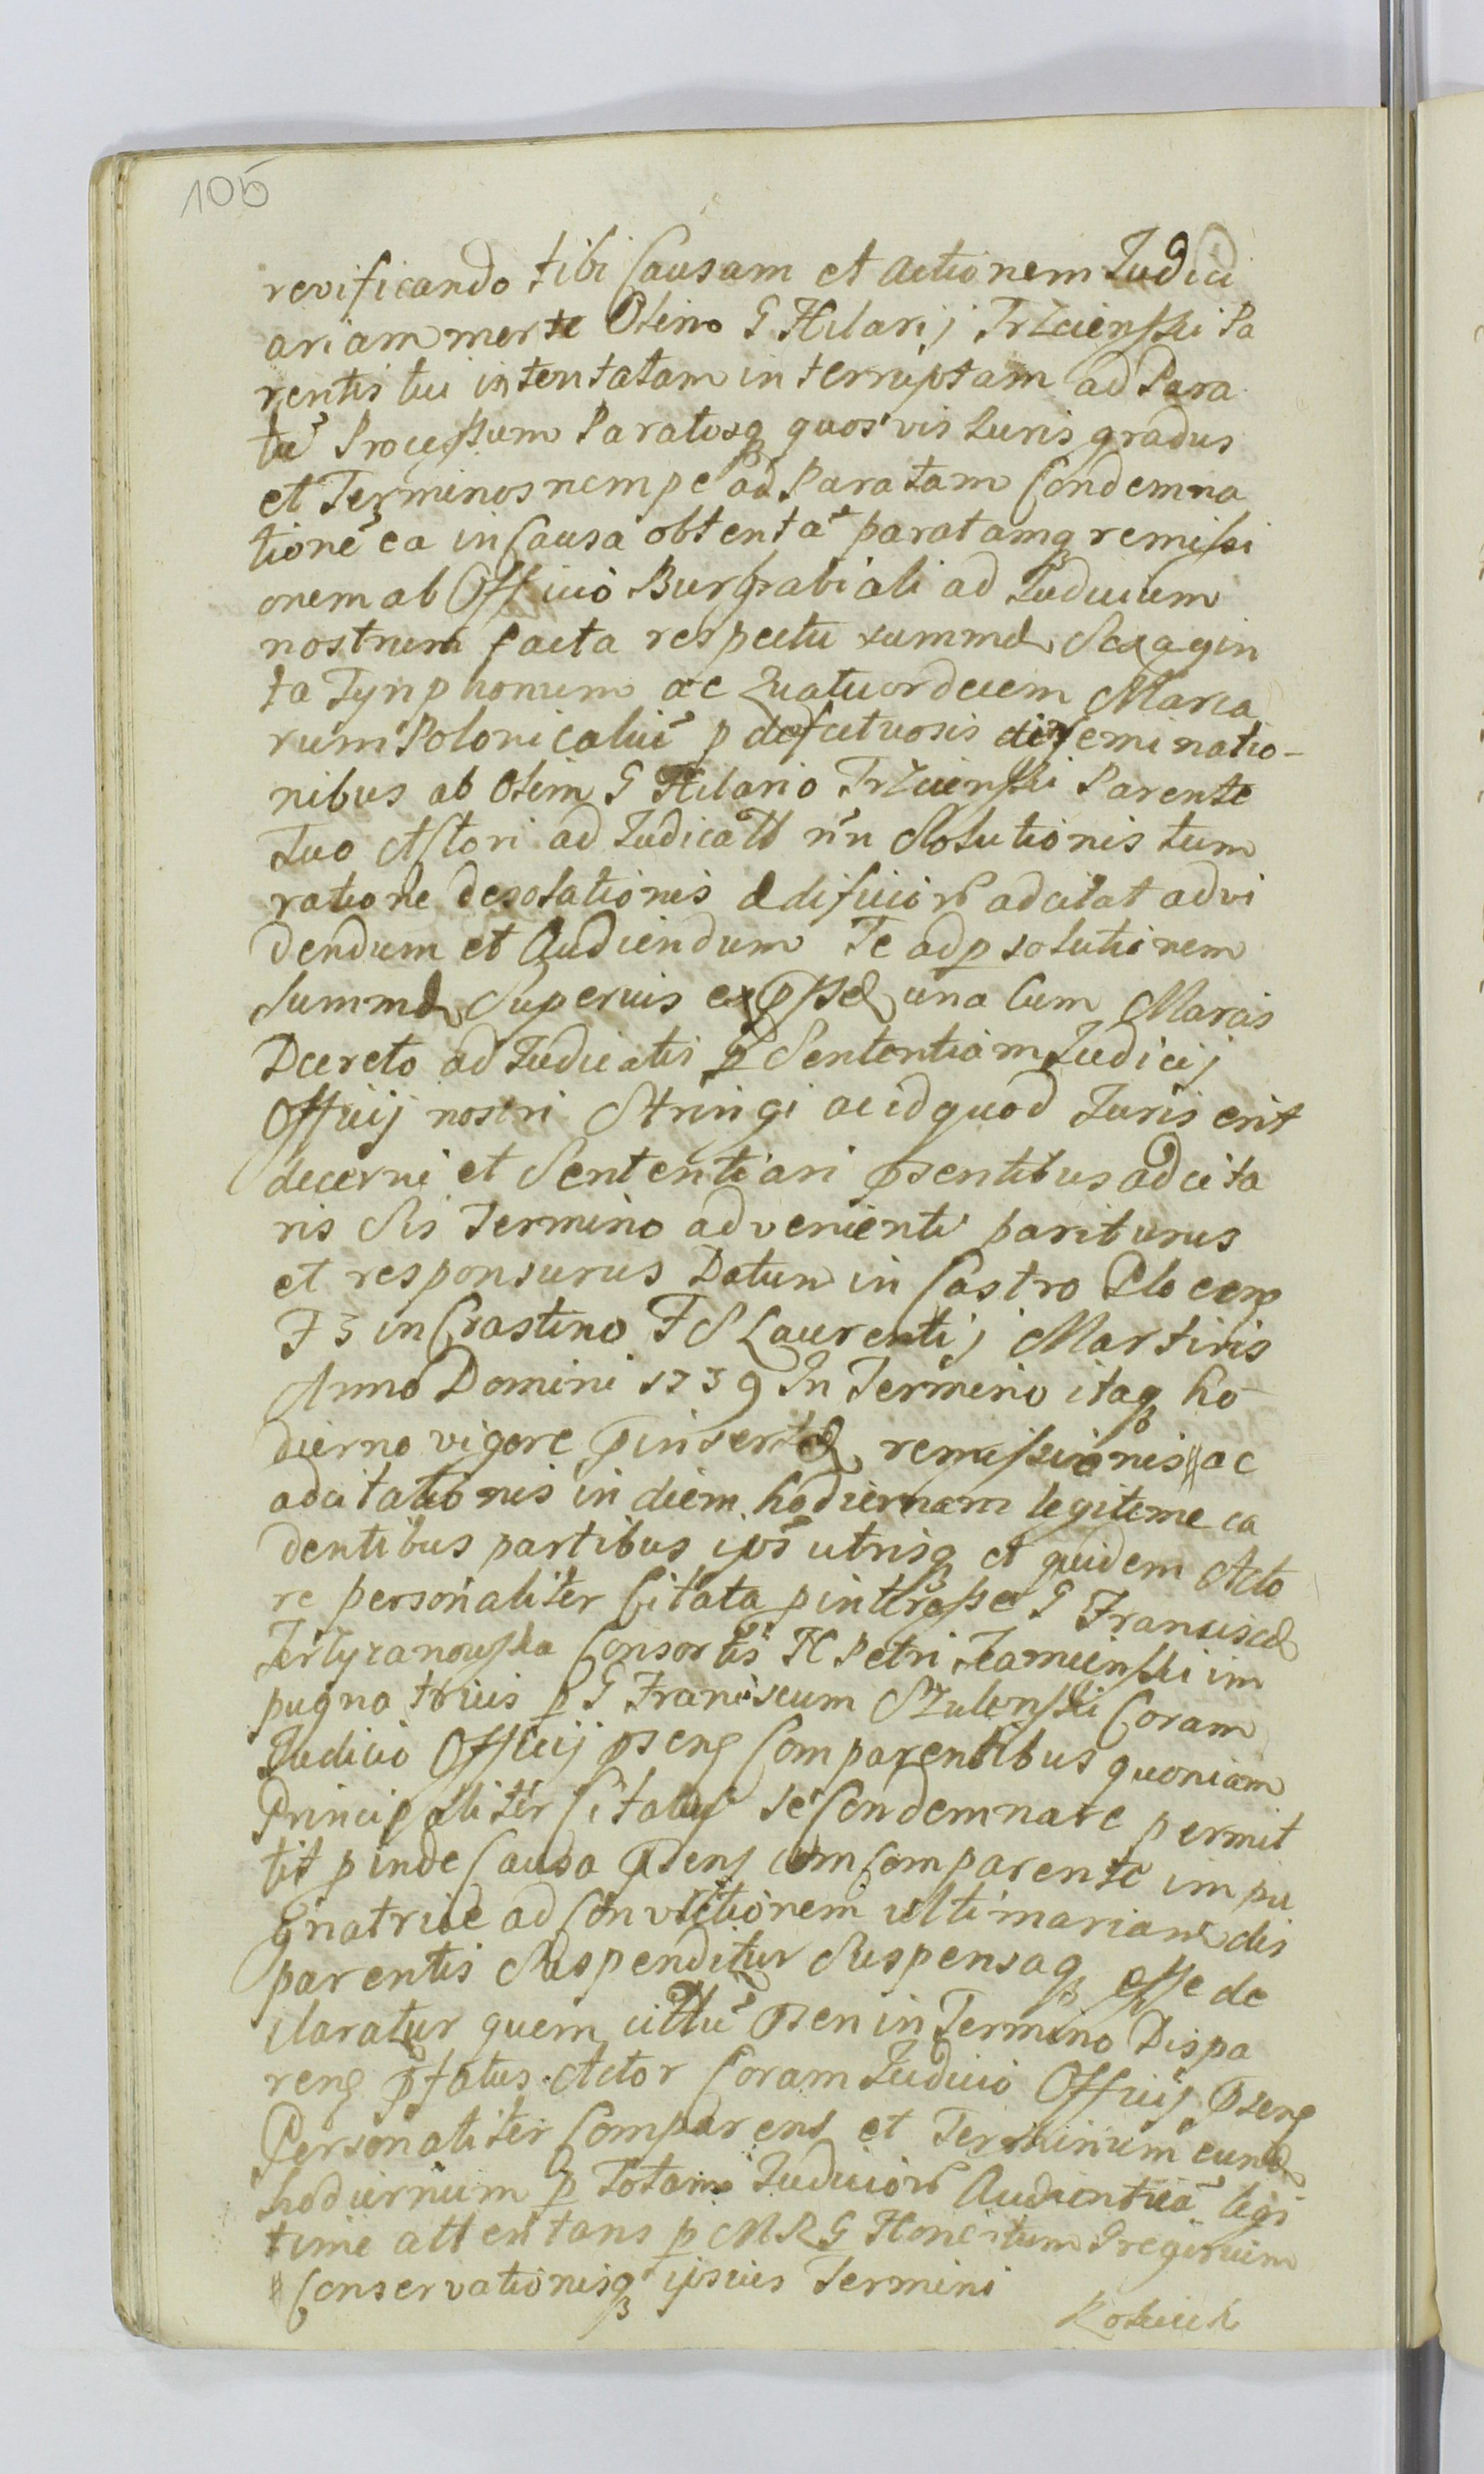 105
revificando tibi Causam et actionem Judici
ariam morte Olim G Hilarij Trzcienski Pa
rentis tui intentatam interruptam ad Para
tũ Processum Paratosq quosvis Juris gradus
et Terminos nempe ad Paratam Condemna
tionẽ ea in Causa obtentã paratamq remissi
onem ab Officio Burgrabiali ad Judicium
nostrum facta respectu summæ Sexagin
ta Tynphonum ac Quatuordecem Marca
rum Polonicaliũ p defectuosis disemi natio-
nibus ab Olim G Hilario Trzcienski Parente
Tuo Actori ad Judicatt nõn Solutionis tum
ratione desolationis ædificior adcitat ad vi
dendum et Audiendum Te ad p solutionem
Summæ Superius exp̄ssæ una Cum Marcis
Decreto ad Judicatis p Sententiam Judicij
Officij nostri Stringi ac id quod Juris erit
decerni et Sententiari p̄sentibus adcita
ris Sis Termino advenienti pariturus
et responsurus Datum in Castro Plocen
F 3 in Crastino F S Laurentij Martiris
Anno Domini 1739 In Termino itaq ho
dierno vigore p̄insertæ remissionis ac
adcitationis in diem hodiernam legitime ca
dentibus partibus ip̄s utrisq et quidem Acto
re personaliter Citata p interesse G Franciscæ
Consortis H Petri im
pugnatricis p G Franciscum Szulenski Coram
Judicio Officij p̄sen Comparentibus quoniam
Principaliter Citatus se Condemnare permit
tit p inde Causa p̄sens cum Comparente impu
gnatrice ad Convictionem ultimariam dis
parentis Suspenditur Suspensaq esse de
claratur quem cittũ p̄sen in Termino Dispa
ren p̄fatus Actor Coram Judicio Officij p̄sen
Personaliter Comparens et Terminum eund
hodiernum p Totam Judicior Audientiã legi
time attentans p M R G Honestum Gregorium
Conservationisq ipsius Termini